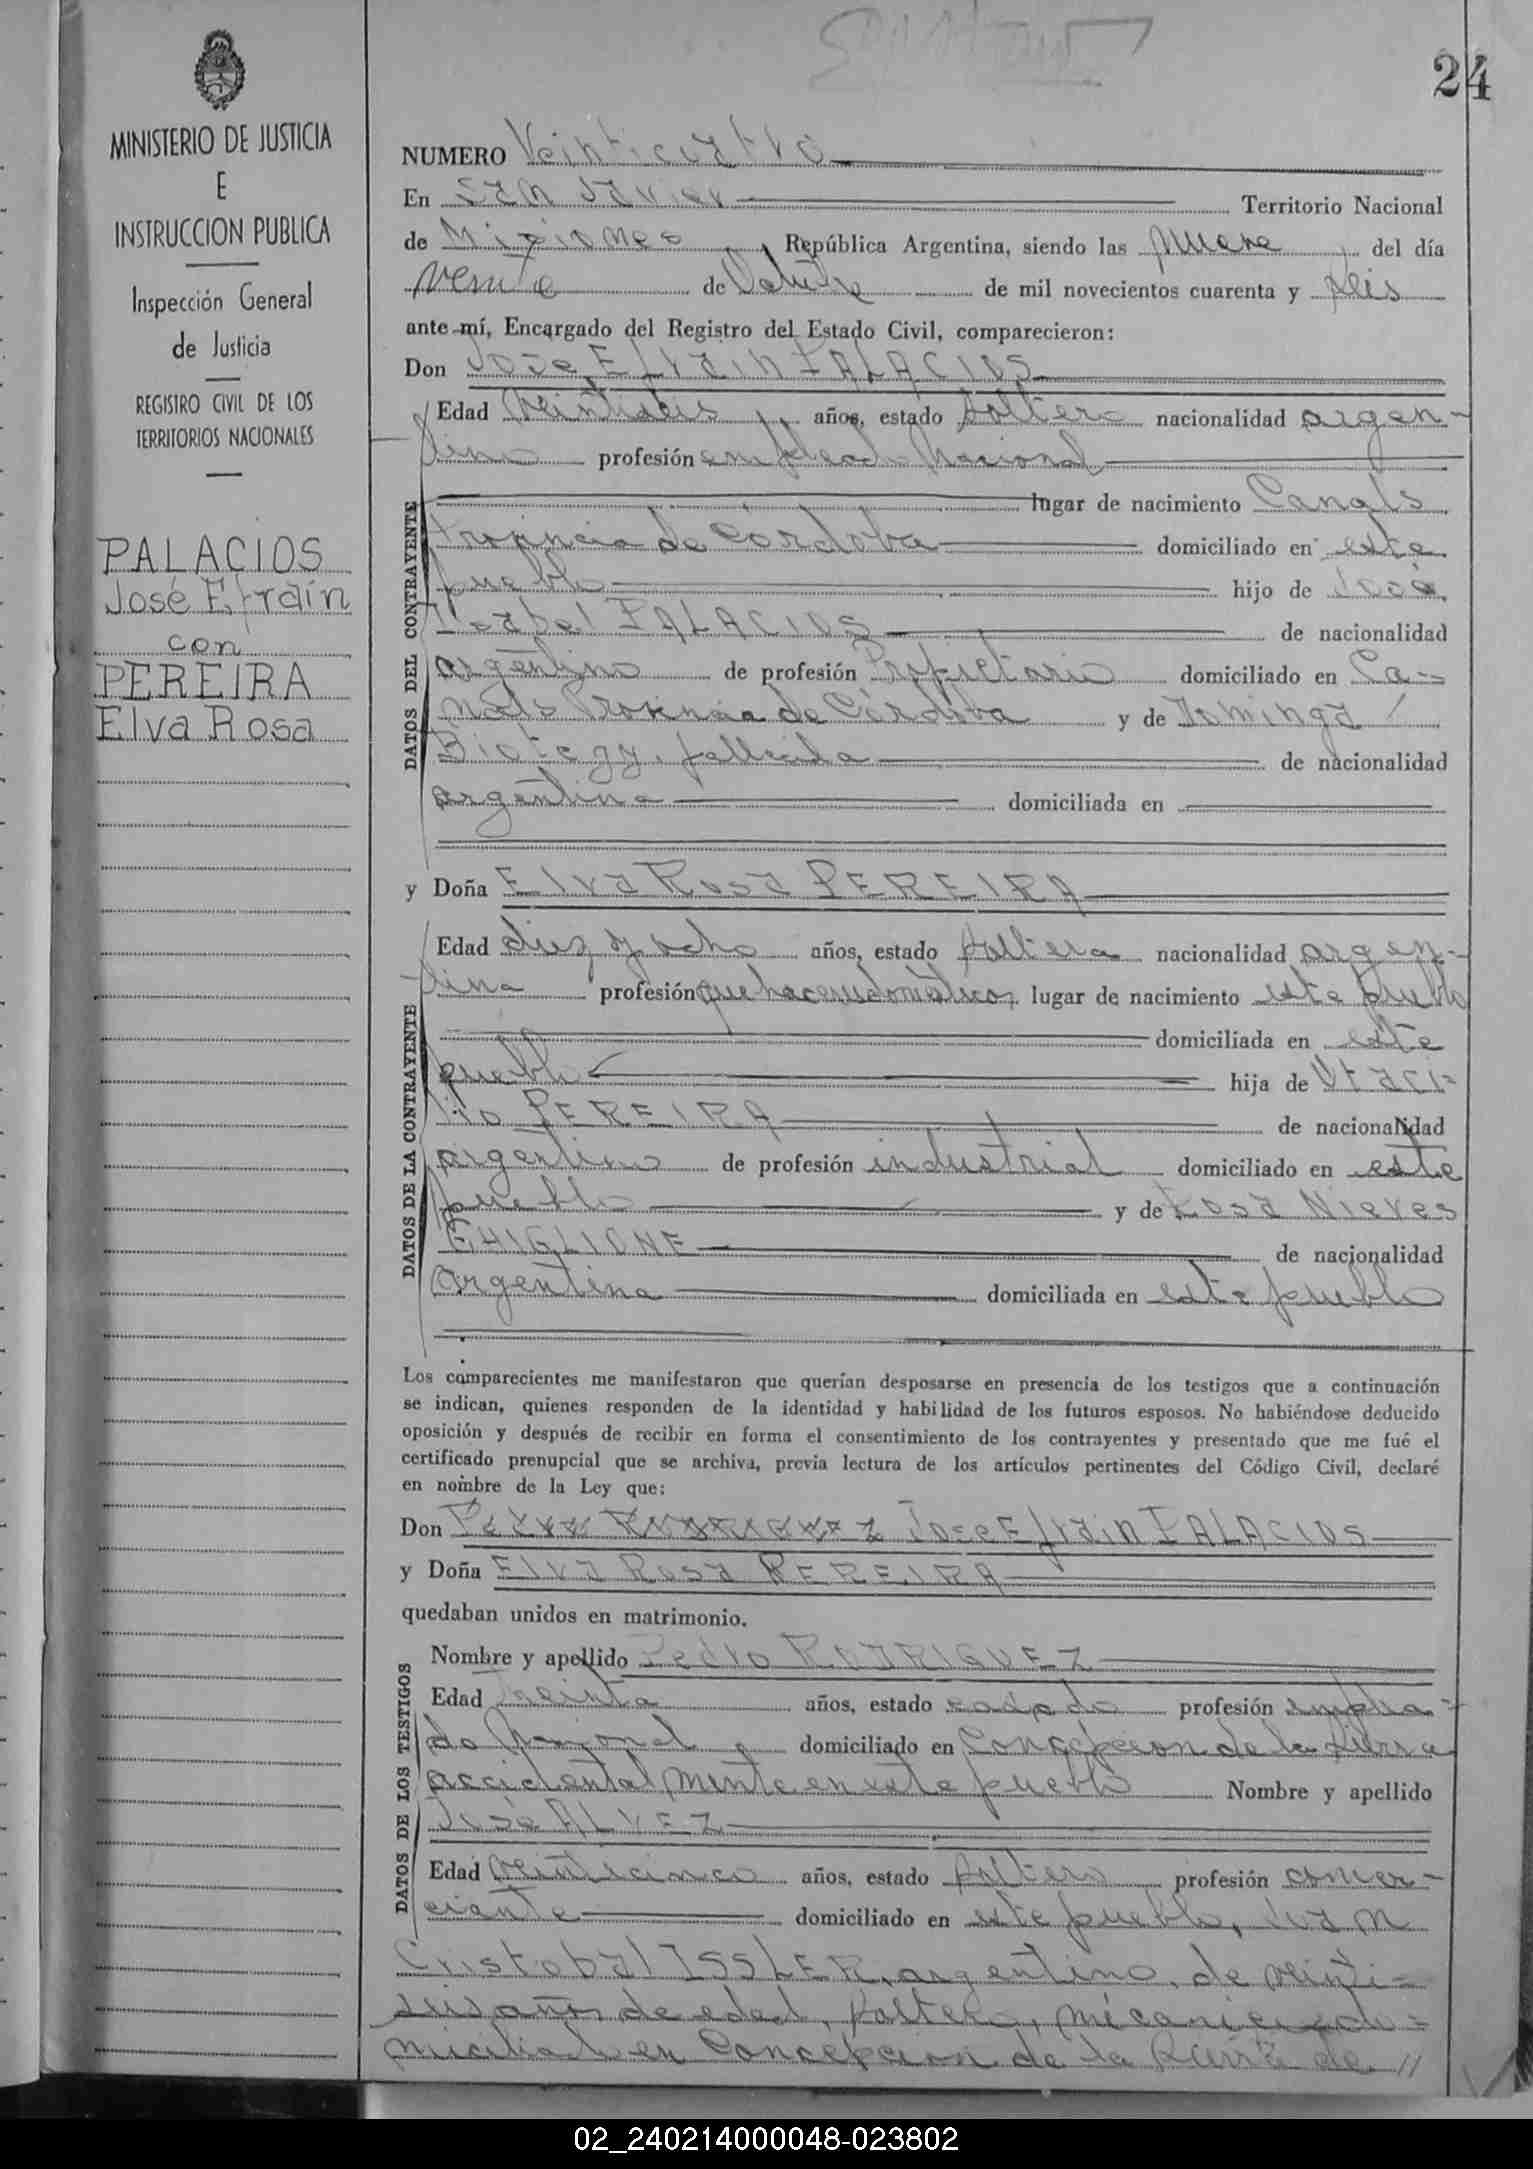 24
MINISTERIO DE JUSTICIA
E
INSTRUCCION PUBLICA
Inspección General
de Justicia
REGISTRO CIVIL DE LOS
TERRITORIOS NACIONALES
PALACIOS
José Efraín
con
PEREIRA
Elva Rosa
NUMERO Veinticuatro
En San Javier Territorio Nacional
de Misiones, República Argentina, siendo las nueve del día
veinte de Octubre de mil novecientos cuarenta y seis
ante mí, Encargado del Registro del Estado Civil, comparecieron:
Don José Efrain PALACIOS
DATOS DEL CONTRAYENTE
Edad veintiseis años, estado soltero nacionalidad argen-
tino profesión empleado Nacional
lugar de nacimiento Canals
Provincia de Córdoba domiciliado en este
pueblo hijo de José
Isabel PALACIOS de nacionalidad
argentino de profesión Propietario domiciliado en Ca-
nals Provincia de Córdoba y de Dominga
fallecida de nacionalidad
argentina domiciliada en
y Doña Elva Rosa PEREIRA
DATOS DE LA CONTRAYENTE
Edad diez y ocho años, estado soltera nacionalidad argen-
tina profesión quehaceres domésticos lugar de nacimiento este pueblo
domiciliada en este
pueblo hija de
PEREIRA de nacionalidad
argentino de profesión industrial domiciliado en este
pueblo y de Rosa Nieves
GHIGLIONE de nacionalidad
argentina domiciliada en este pueblo
Los comparecientes me manifestaron que querían desposarse en presencia de los testigos que a continuación
se indican, quienes responden de la identidad y habilidad de los futuros esposos. No habiéndose deducido
oposición y después de recibir en forma el consentimiento de los contrayentes y presentado que me fué el
certificado prenupcial que se archiva, previa lectura de los artículos pertinentes del Código Civil, declaré
en nombre de la Ley que:
Don Pedro RODRIGUEZ José Efrain PALACIOS
y Doña Elva Rosa PEREIRA
quedaban unidos en matrimonio.
DATOS DE LOS TESTIGOS
Nombre y apellido Pedro RODRIGUEZ
Edad Treinta años, estado casado profesión emplea-
do Nacional domiciliado en Concepcion de la Sierra
accidentalmente en este pueblo Nombre y apellido
José ALVEZ
Edad veinticinco años, estado soltero profesión comer-
ciante domiciliado en este pueblo, Juan
Cristobal ISSLER, argentino, de veinti-
seis años de edad, soltero, mecanico do-
miciliado en Concepcion de la Sierra de //
02_240214000048-023802